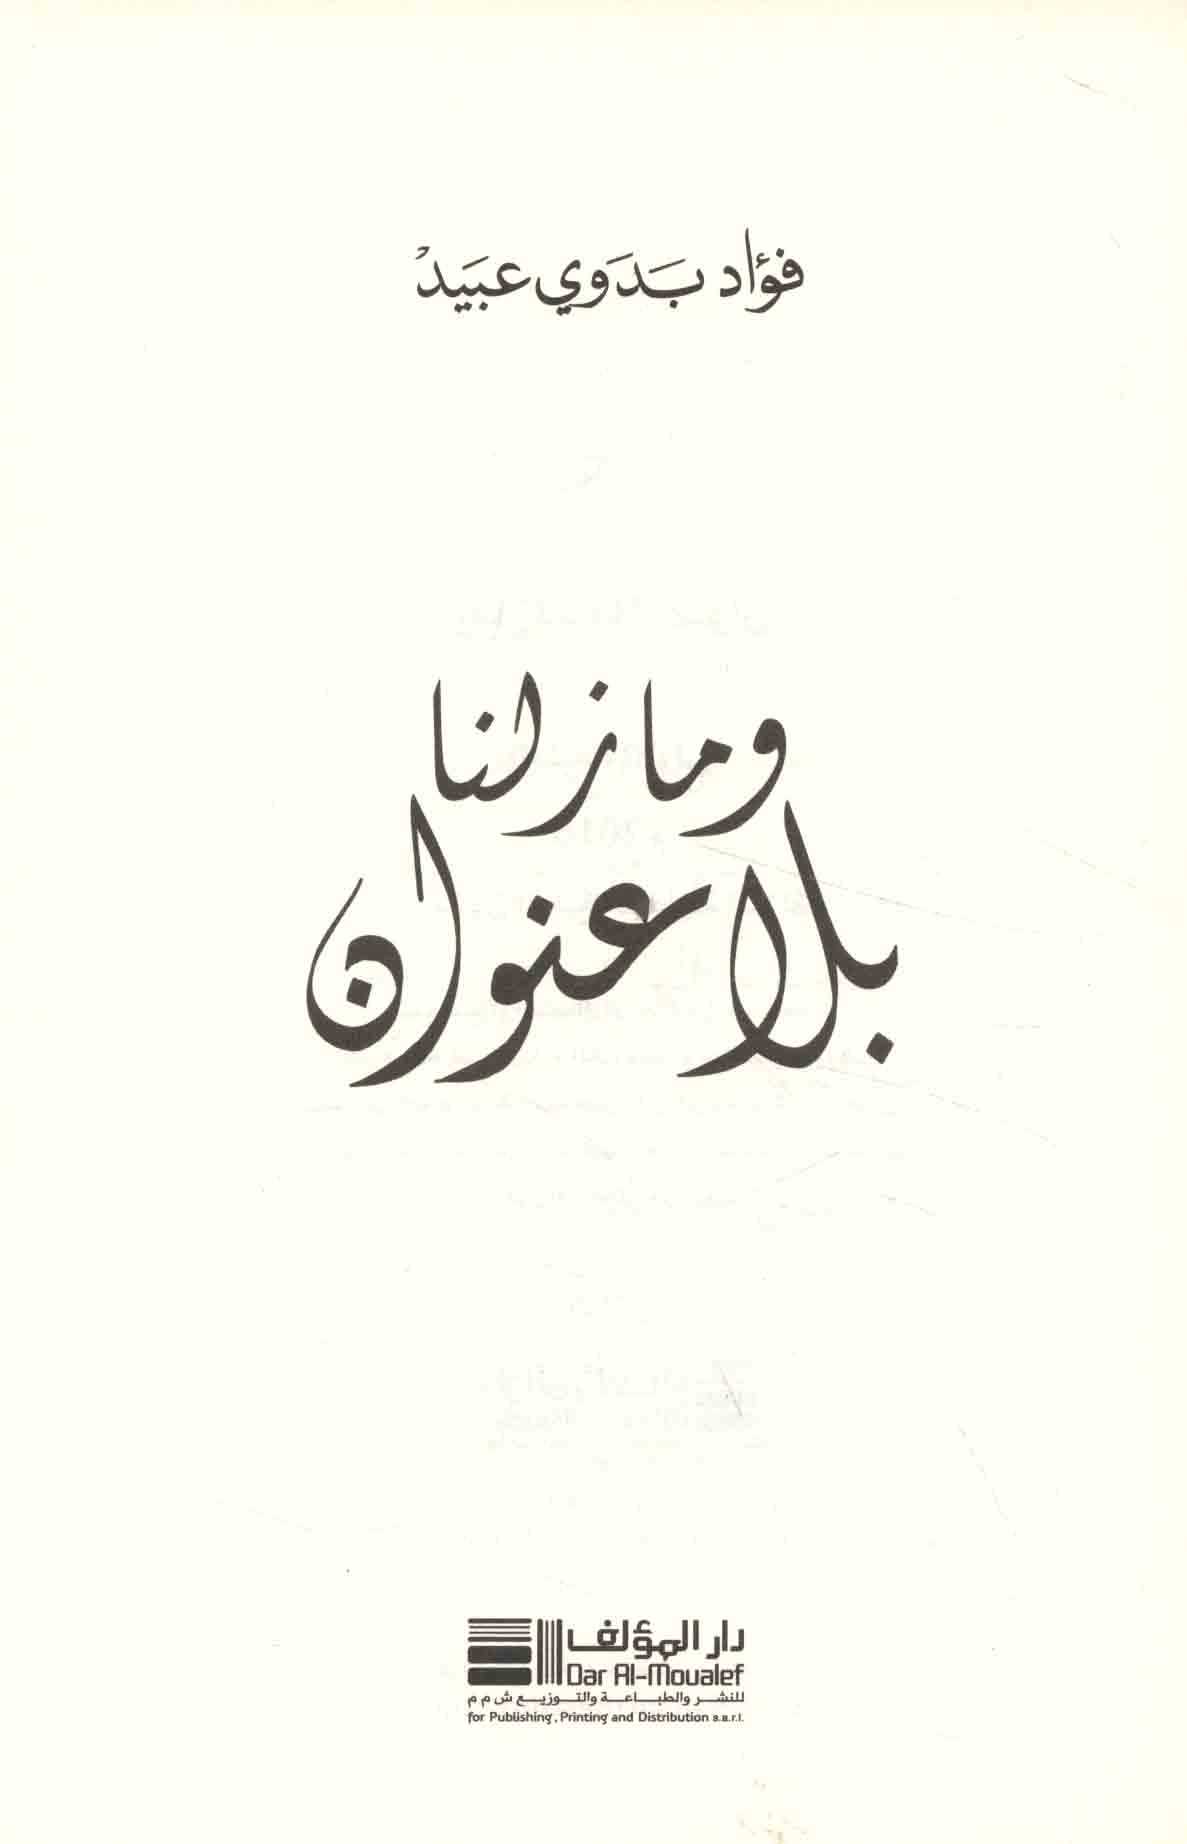 فؤاد بدوي عبيد
وما زلنا
بلا عنوان
دار المؤلف
Dar Al-Moualef
للنشر والطباعة والتوزيع ش م م
for Publishing, Printing and Distribution s.a.r.l.